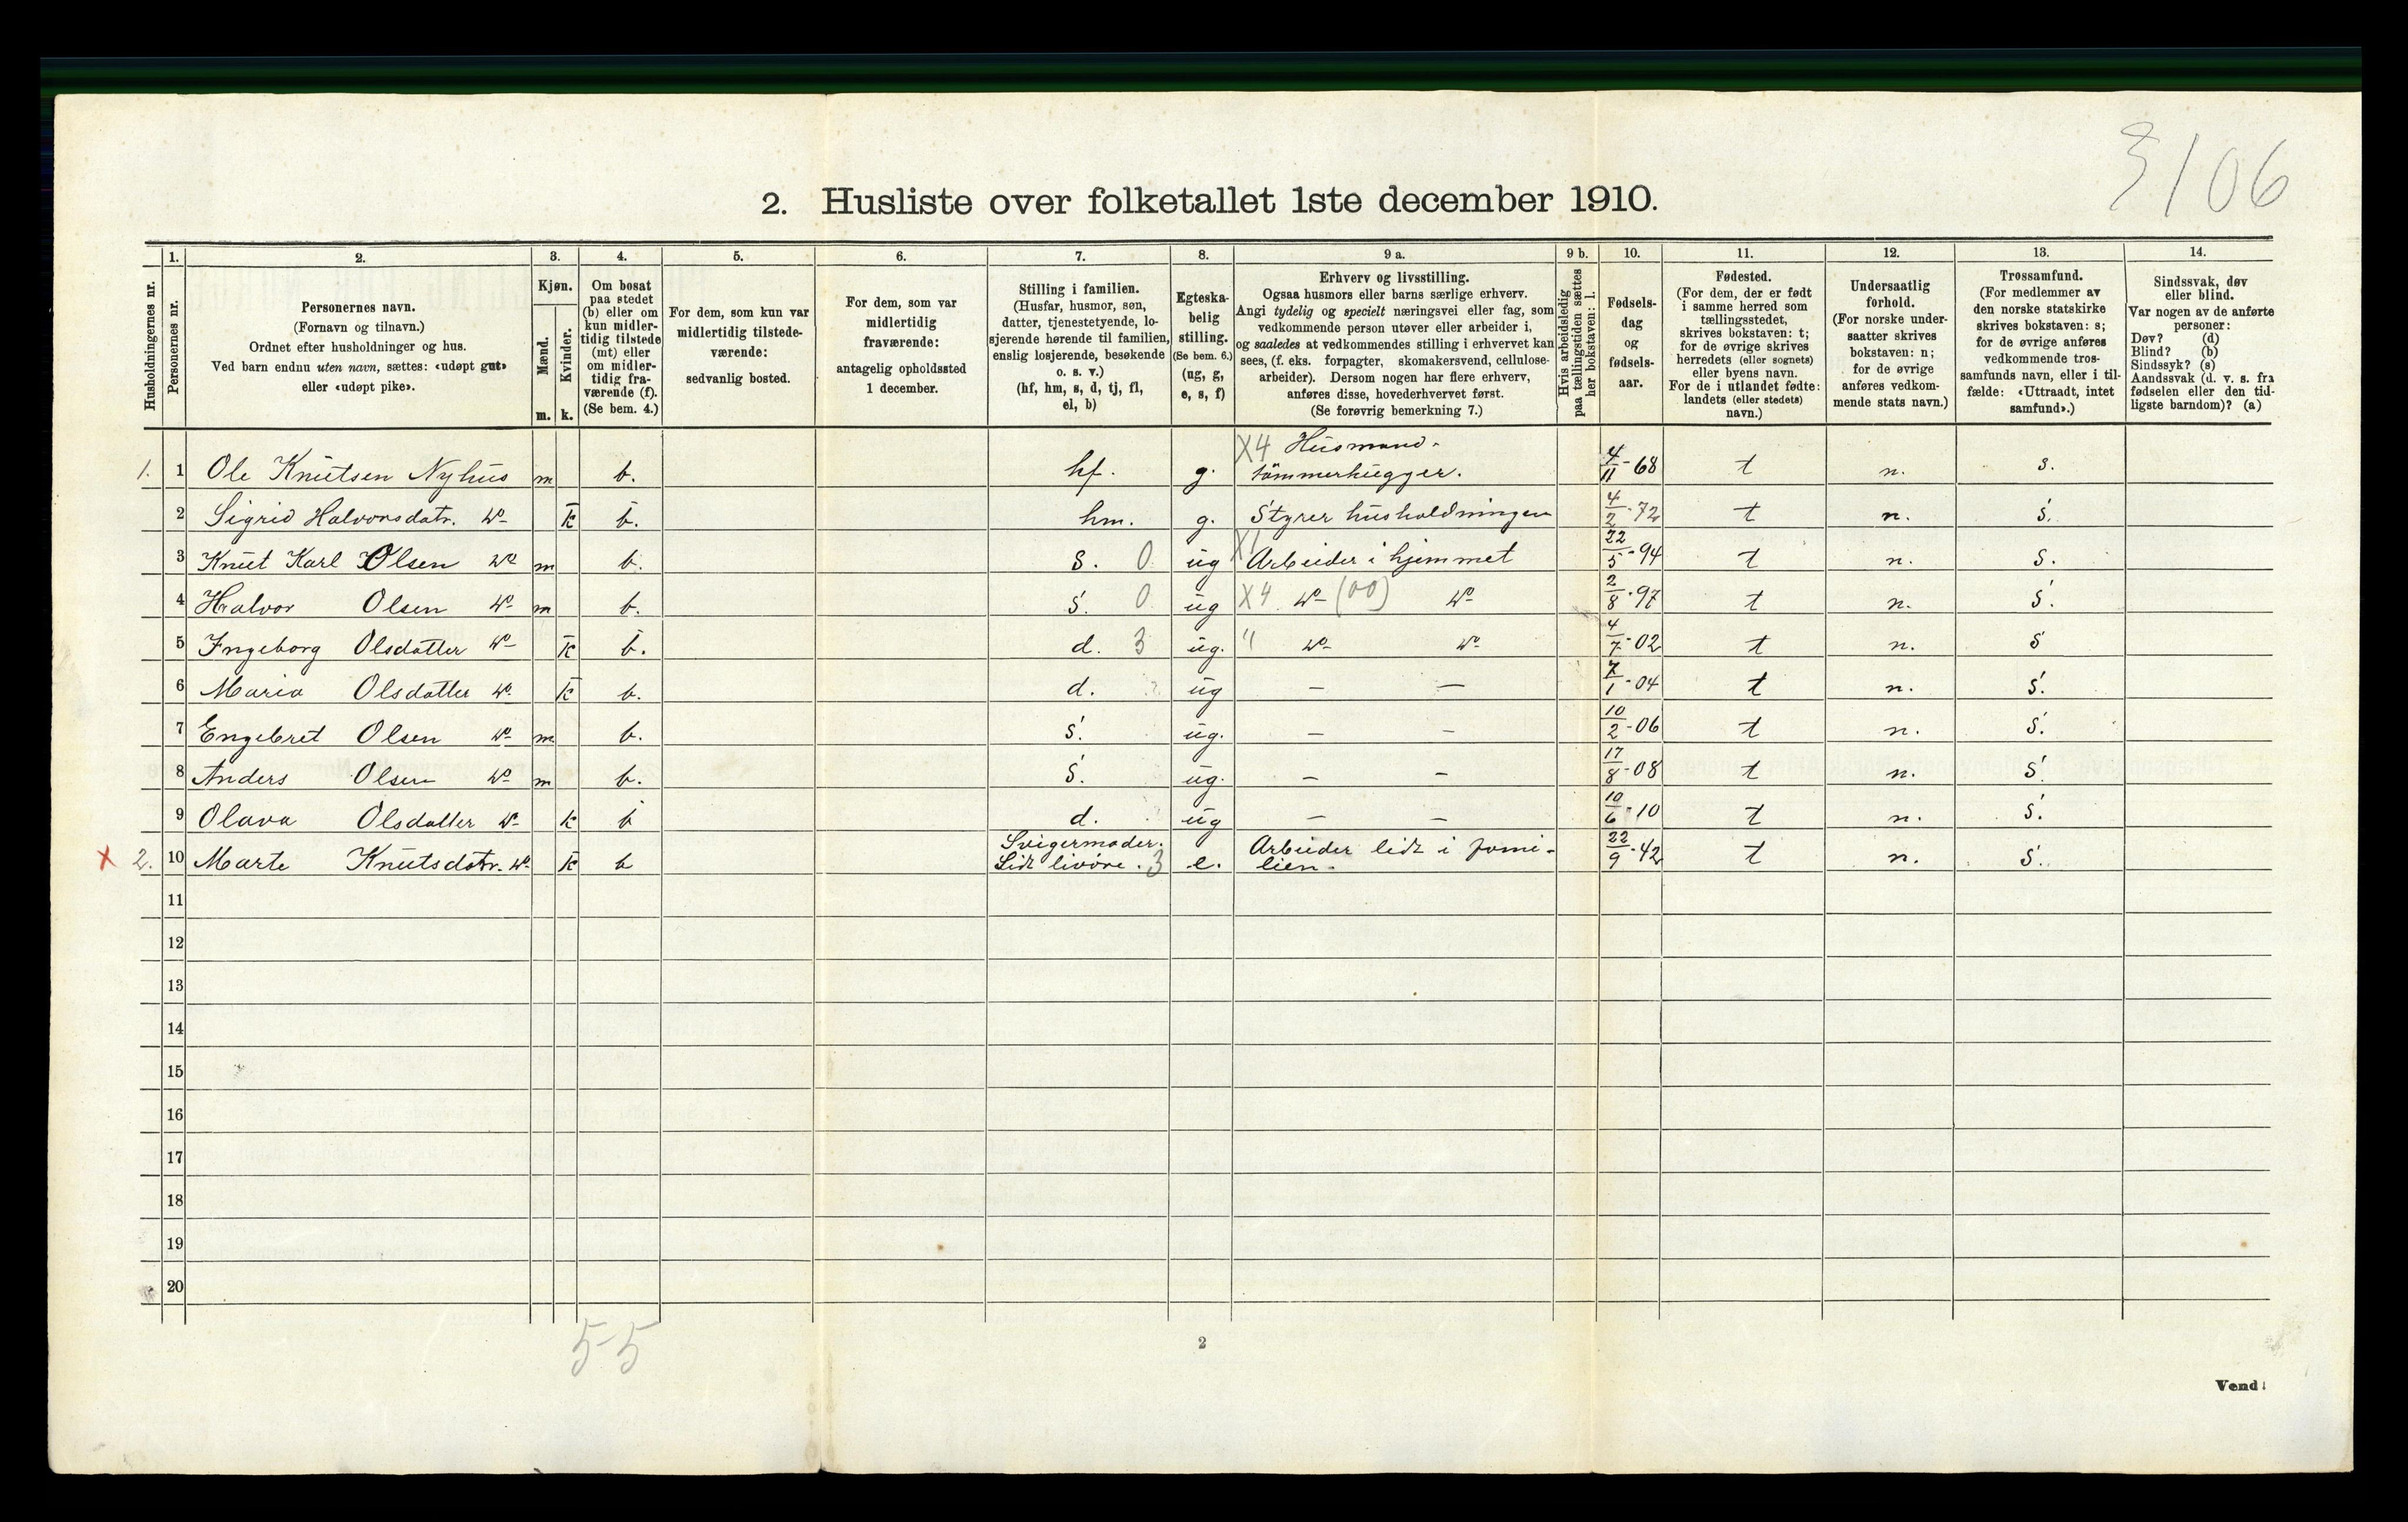 3106
2. Husliste over folketallet 1ste december 1910.
Husholdningernes nr.
1.
Personernes nr.
2.
Personernes navn.
(Fornavn og tilnavn.)
Ordnet efter husholdninger og hus.
Ved barn endnu uten navn, sættes: «udøpt gut»
eller «udøpt pike».
3.
Kjøn.
Mænd.
Kvinder.
m. k.
4.
Om bosat
paa stedet
(b) eller om
kun midler-
tidig tilstede
(mt) eller
om midler-
tidig fra-
værende (f).
(Se bem. 4.)
5.
For dem, som kun var
midlertidig tilstede-
værende:
sedvanlig bosted.
6.
For dem, som var
midlertidig
fraværende:
antagelig opholdssted
1 december.
7.
Stilling i familien.
(Husfar, husmor, søn,
datter, tjenestetyende, lo-
sjerende hørende til familien,
enslig losjerende, besøkende
o. s. v.)
(hf, hm, s, d, tj, fl,
el, b)
8.
Egteska-
belig
stilling.
(Se bem. 6.)
(ug, g,
e, s, f)
9 a.
Erhverv og livsstilling.
Ogsaa husmors eller barns særlige erhverv.
Angi tydelig og specielt næringsvei eller fag, som
vedkommende person utøver eller arbeider i,
og saaledes at vedkommendes stilling i erhvervet kan
sees, (f. eks. forpagter, skomakersvend, cellulose-
arbeider). Dersom nogen har flere erhverv,
anføres disse, hovederhvervet først.
(Se forøvrig bemerkning 7.)
9 b.
Hvis arbeidsledig
paa tællingstiden sættes
her bokstaven: l.
10.
Fødsels-
dag
og
fødsels-
aar.
11.
Fødested.
(For dem, der er født
i samme herred som
tællingsstedet,
skrives bokstaven: t;
for de øvrige skrives
herredets (eller sognets)
eller byens navn.
For de i utlandet fødte:
landets (eller stedets)
navn.)
12.
Undersaatlig
forhold.
(For norske under-
saatter skrives
bokstaven: n;
for de øvrige
anføres vedkom-
mende stats navn.)
13.
Trossamfund.
(For medlemmer av
den norske statskirke
skrives bokstaven: s;
for de øvrige anføres
vedkommende tros-
samfunds navn, eller i til-
fælde: «Uttraadt, intet
samfund».)
14.
Sindssvak, døv
eller blind.
Var nogen av de anførte
personer:
Døv? (d)
Blind? (b)
Sindssyk? (s)
Aandssvak (d. v. s. fra
fødselen eller den tid-
ligste barndom)? (a)
1. 1 Ole Knutsen Nyhus m b. hf. g. X4 Husmand-
tömmerhugger. 4/11-68 t n. s.
2 Sigrid Halvorsdatr. do k b. hm. g. Styrer husholdningen 4/2-72 t n. s.
3 Knut Karl Olsen do m b. s. 0 ug X1 Arbeider i hjemmet 22/5-94 t n. s.
4 Halvor Olsen do m b. s. 0 ug X4 do (00) do 2/8-97 t n. s.
5 Ingeborg Olsdatter do k b. d. 3 ug. " do do 4/7-02 t n. s
6 Maria Olsdatter do k b. d. ug — — 7/1-04 t n. s.
7 Engebret Olsen do m b. s. ug. — — 10/2-06 t n. s.
8 Anders Olsen do m b. s. ug. — — 17/8-08 t n. s.
9 Olava Olsdatter do k b d. ug — — 10/6-10 t n. s.
X 2. 10 Marte Knutsdatr. do k b Svigermoder.
Lidt livöre. 3 e. Arbeider lidt i fami-
lien. 22/9-42 t n. s.
11
12
13
14
15
16
17
18
19
20
5-5
2
Vend!